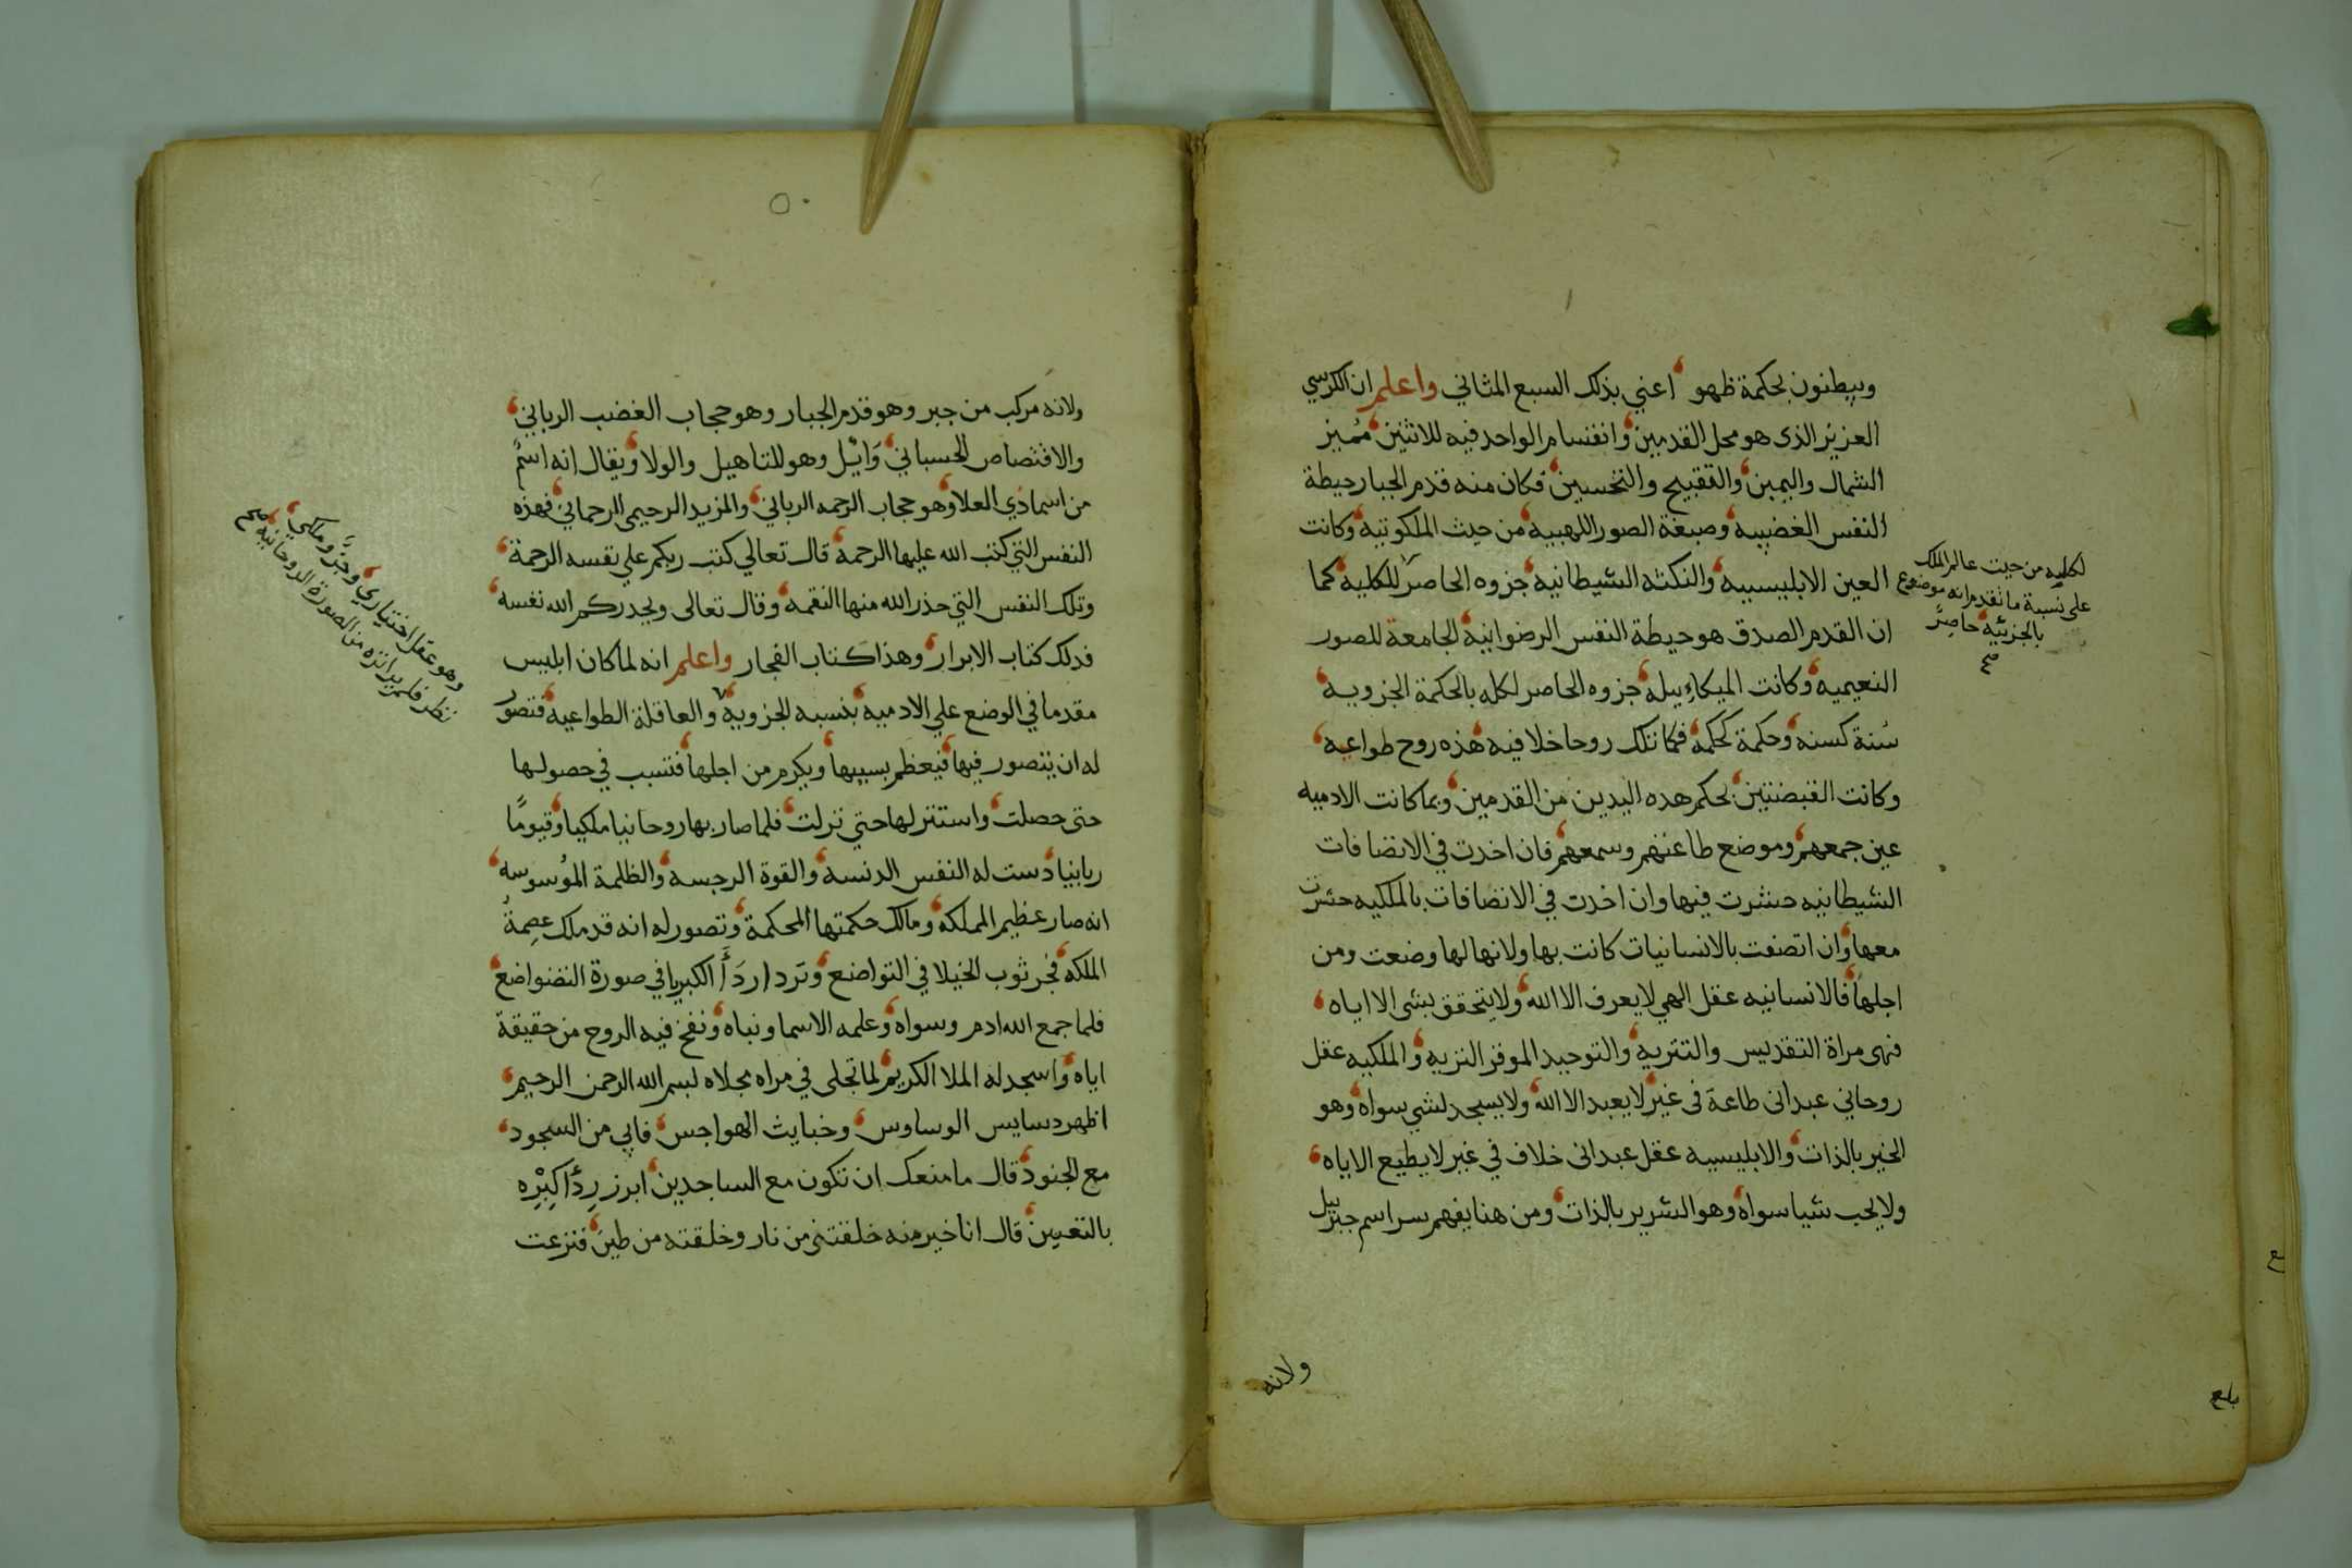 ويبطنون بحكمة ظهو اعني بذلك السبع المثاني واعلم ان الكرسي
العزيز الذى هو محل القدمين وانقسام الواحد فيه للاثنين مميز
الشمال واليمين والتقبيح والتحسين فكان منه قدم الجبار حيطة
النفس الغضبيه وصبغة الصور اللهبيه من حيث الملكوتيه وكانت
العين الابليسيه والنكثه الشيطانيه جزوه الحاصر للكليه كما
ان القدم الصدق هو حيطة النفس الرضوانية الجامعة للصور
النعيميه وكانت الميكاءيله جزوه الحاصر لكله بالحكمة الجزويه
سنة كسنه وحكمة كحكمه فكانتلك روحا خلافيه هذه روح طواعيه
وكانت القبضتين بحكم هذه اليدين من القدمين وبما كانت الادميه
عين جمعهم وموضع طاعتهم وسمعهم فان اخدت في الانضافات
الشيطانيه حشرت فيها وان اخدت في الانضافات بالملكيه حشرت
معها وان اتصفت بالانسانيات كانت بها ولانها لها وضعت ومن
اجلها فالانسانيه عقل الهي لا يعرف الا الله ولا يتحقق بشى الا اياه
فهى مراة التقديس والتنزيه والتوحيد الموقر النزيه والملكيه عقل
روحاني عبدانى طاعة فى غير لا يعبد الا الله ولا يسجد لشي سواه وهو
الخير بالذات والابليسيه عقل عبدانى خلاف في غير لا يطيع الا اياه
ولا يحب شيا سواه وهو الشرير بالذات ومن هنا يفهم سر اسم جبريل
لكليه من حيث عالم الملك
على نسبة ما تقدم انه موضوع
بالجزئيه حاصر
صح
ولانه
بلغ
ولانه مركب من جبر وهو قدم الجبار وهو حجاب الغضب الرباني
والاقتصاص الحسباني وايل وهو للتاهيل والولا ويقال انه اسم
من اسما ذي العلا وهو حجاب الرحمه الرباني والمزيد الرحيمي الرحماني فهذه
النفس التي كتب الله عليها الرحمة قال تعالي كتب ربكم علي نفسه الرحمة
وتلك النفس التي حذر الله منها النقمه وقال تعالى ويحدركم الله نفسه
فدلك كتاب الابرار وهذا كتاب الفجار واعلم انه لما كان ابليس
مقدما في الوضع علي الادميه بنسبه الجزويه والعاقلة الطواعيه فتصور
له ان يتصور فيها فيعظم بسببها ويكرم من اجلها فتسبب في حصولها
حتى حصلت واستنزلها حتي نزلت فلما صار بها روحانيا ملكيا وقيوما
ربانيا دست له النفس الدنسه والقوة الرجسه والظلمة الموسوسه
انه صار عظيم المملكه ومالك حكمتها المحكمة وتصور له انه قد ملك عصمة
الملكه فجر ثوب الخيلا في التواضع وتردا ردا الكبريا في صورة التضواضع
فلما جمع الله ادم وسواه وعلمه الاسما ونباه ونفخ فيه الروح من حقيقة
اياه واسجد له الملا الكريم لما تجلى في مراه مجلاه لبسم الله الرحمن الرحيم
اظهر دسايس الوساوس وخبايث الهواجس فابي من السجود
مع الجنود قال ما منعك ان تكون مع الساجدين ابرز ردا كبره
بالتعيين قال انا خير منه خلقتنى من نار وخلقته من طين فنزعت
وهو عقل اختياري وجزو ملكي
فلم ير انزه من الصورة الروحانيه صح